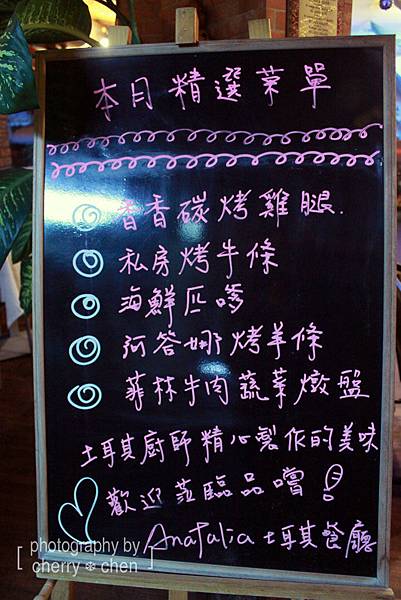 本日精選菜單
香香碳烤雞腿.
私房烤牛條
海鮮匹嗲
阿答娜烤羊條
菲林牛肉蔬菜燉盤
土耳其廚師精心製作的美味
歡迎蒞臨品嚐!
Anatalia 土耳其餐廳
photography by
cherry * chen